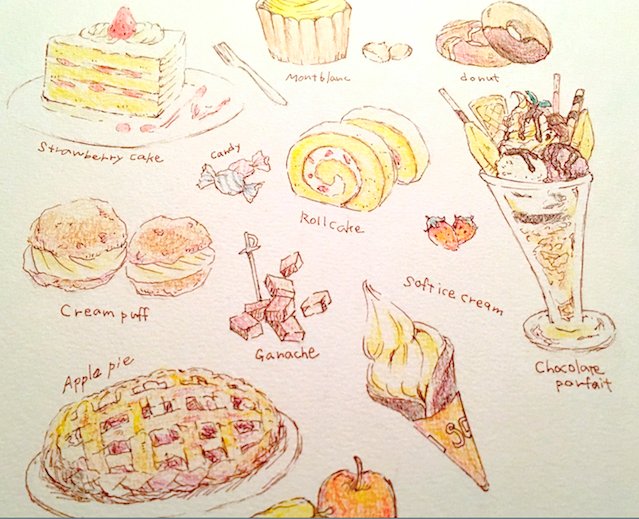 Montblanc
donut
Strawberry cake
candy
Roll cake
Cream puff
Soft ice cream
Ganache
Chocolate
parfait
Apple pie